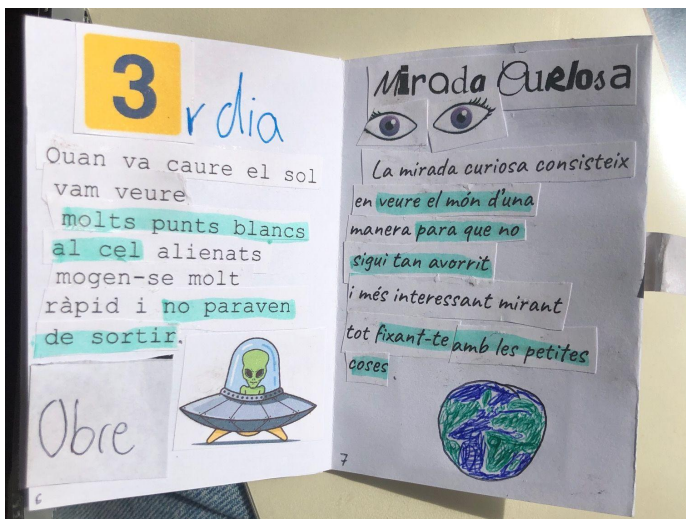 3r dia
Quan va caure el sol
vam veure
molts punts blancs
al cel alienats
mogen-se molt
ràpid i no paraven
de sortir.
Obre
6
Mirada Curiosa
La mirada curiosa consisteix
en veure el món d'una
manera para que no
sigui tan avorrit
i més interessant mirant
tot fixant-te amb les petites
coses
7